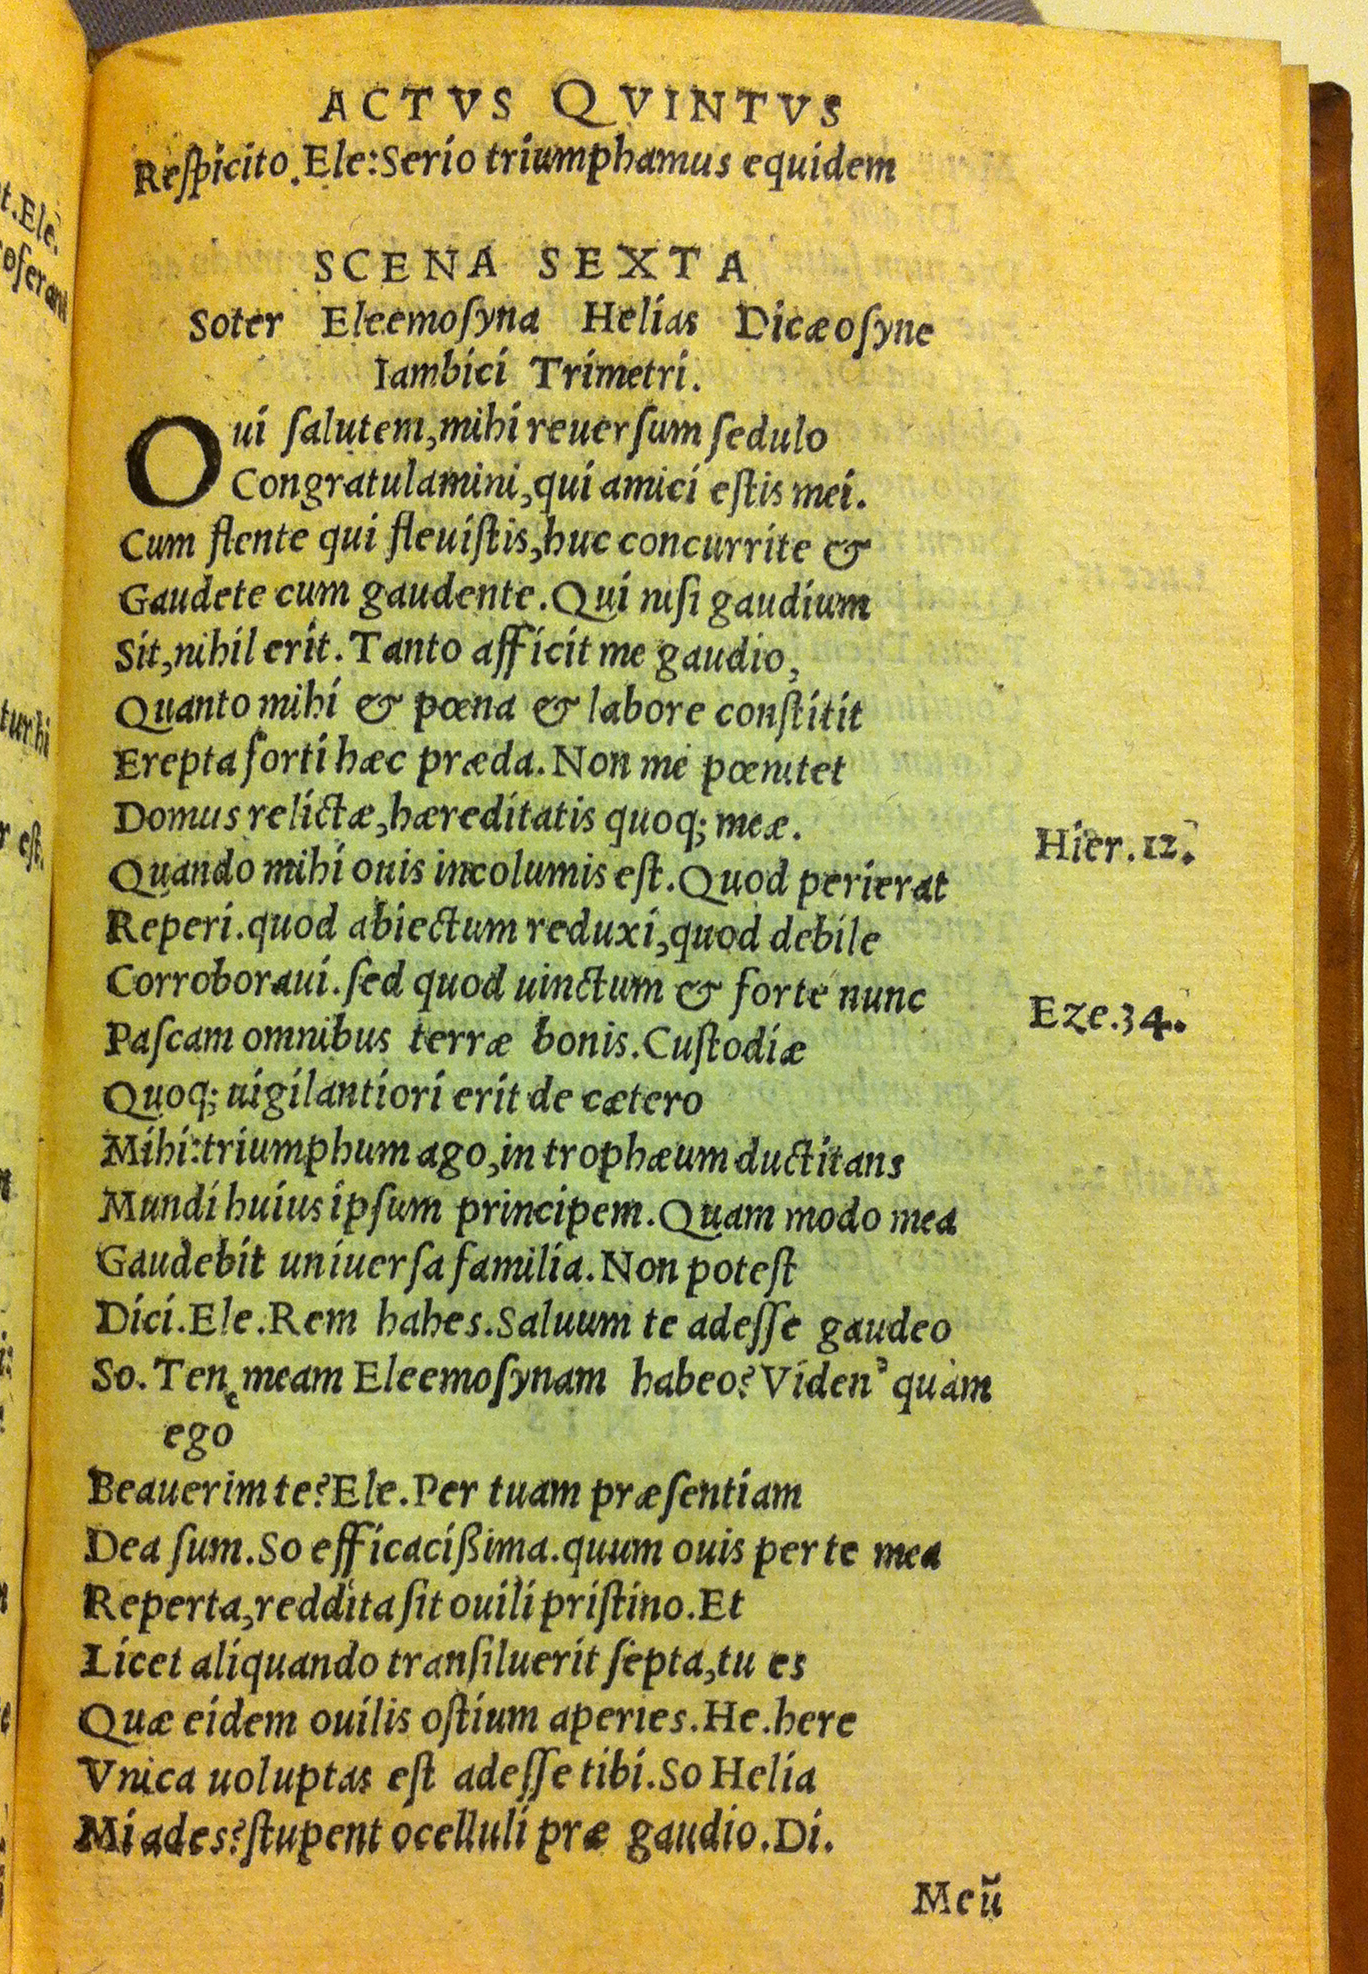 ACTVS QVINTVS
Respicito. Ele: Serio triumphamus equidem
SCENA SEXTA
Soter Eleemosyna Helias Dicæosyne
Iambici Trimetri.
Oui salutem, mihi reuersum sedulo
Congratulamini, qui amici estis mei.
Cum flente qui fleuistis, huc concurrite &
Gaudete cum gaudente. Qui nisi gaudium
Sit, nihil erit. Tanto afficit me gaudio,
Quanto mihi & pœna & labore constitit
Erepta forti hæc præda. Non me pœnitet
Domus relictæ, hæreditatis quoq; meæ.
Hier. 12.
Quando mihi ouis incolumis est. Quod perierat
Reperi. quod abiectum reduxi, quod debile
Corroboraui. sed quod uinctum & forte nunc
Eze. 34.
Pascam omnibus terræ bonis. Custodiæ
Quoq; uigilantiori erit de cætero
Mihi: triumphum ago, in trophæum ductitans
Mundi huius ipsum principem. Quam modo mea
Gaudebit uniuersa familia. Non potest
Dici. Ele. Rem habes. Saluum te adesse gaudeo
So. Tene meam Eleemosynam habeo? Viden' quàm
ego
Beauerim te? Ele. Per tuam præsentiam
Dea sum. So efficacißima. quum ouis per te mea
Reperta, reddita sit ouili pristino. Et
Licet aliquando transiluerit septa, tu es
Quæ eidem ouilis ostium aperies. He. here
Vnica uoluptas est adesse tibi. So Helia
Mi ades? stupent ocelluli præ gaudio. Di.
Meū